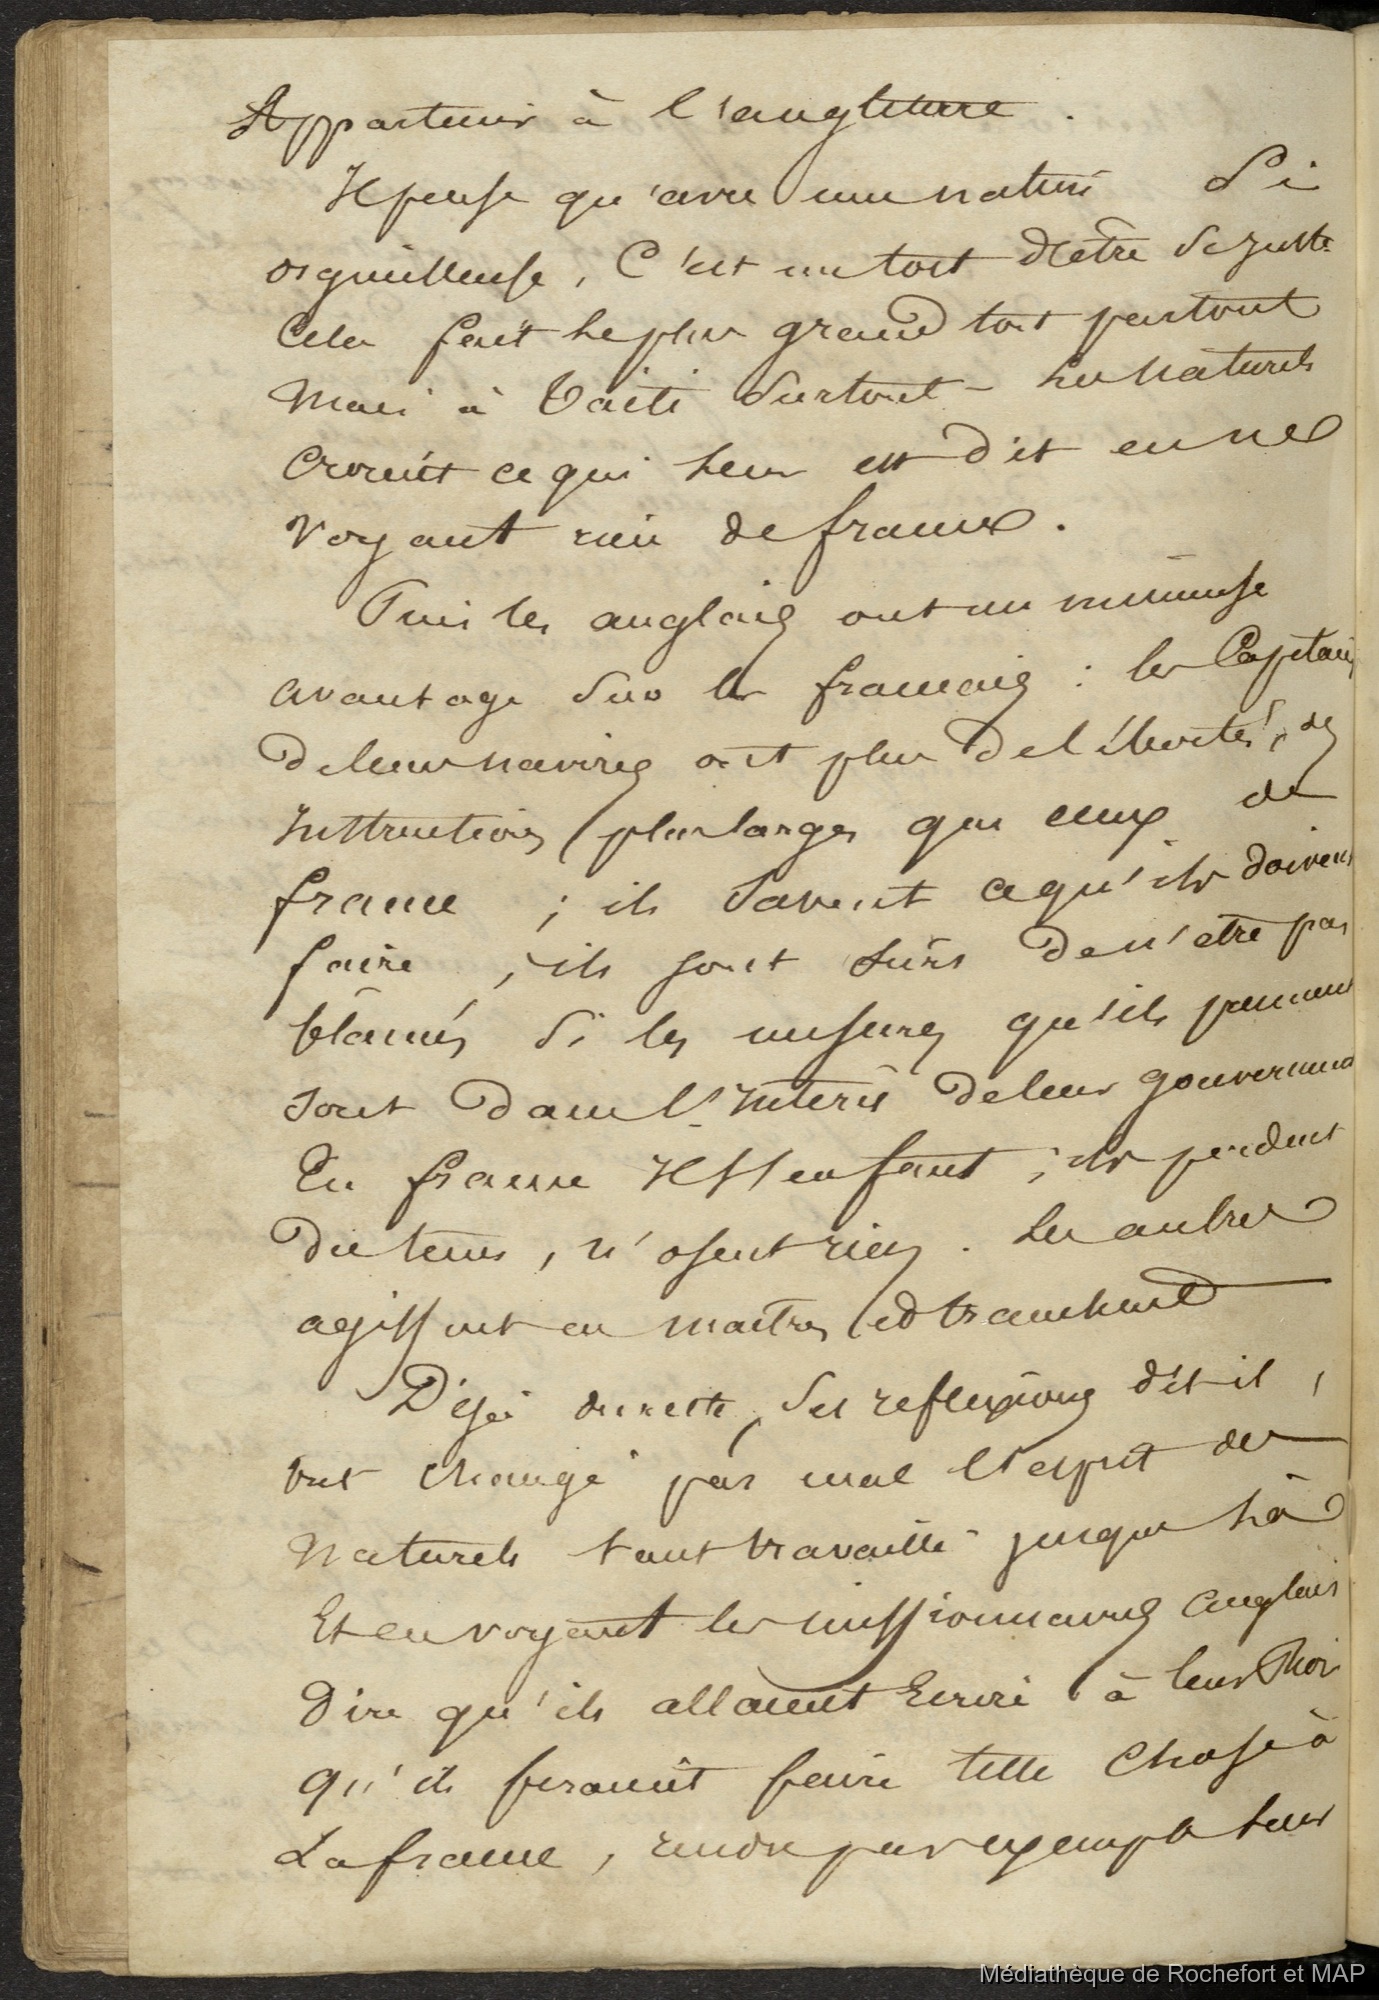 Appartenir à l'angleterre.
Il pense qu'avec une nature si
orgueilleuse, C'est un tort d'être si juste
Cela fait le plus grand tort partout
Mais à Taïti surtout - Les naturels
Croient ce qui leur est dit en ne
voyant rien de france.
Puis les anglais ont un immense
avantage sur les francais : les Capitain
de leurs navires ont plus de liberté, des
Instructions plus larges que ceux de
france ; ils savent ce qu'ils doivent
faire ; ils sont surs de n'etre pas
blâmés si les mesures qu'ils prennent
sont dans l'Interêt de leur gouvernement
En france Il s'en faut ; ils perdent
du tems, n'osent rien. Les autres
agissent en maitres et tranchent
Déjà du reste, ses reflexions dit-il,
ont changé pas mal l'esprit des
Naturels tant travaillé jusque là
Et en voyant les missionnaires anglais
Dire qu'ils allaient Ecrire à leur Roi
qu'ils feraient faire telle Chose à
La france, rendre par exemple leur
Médiathèque de Rochefort et MAP